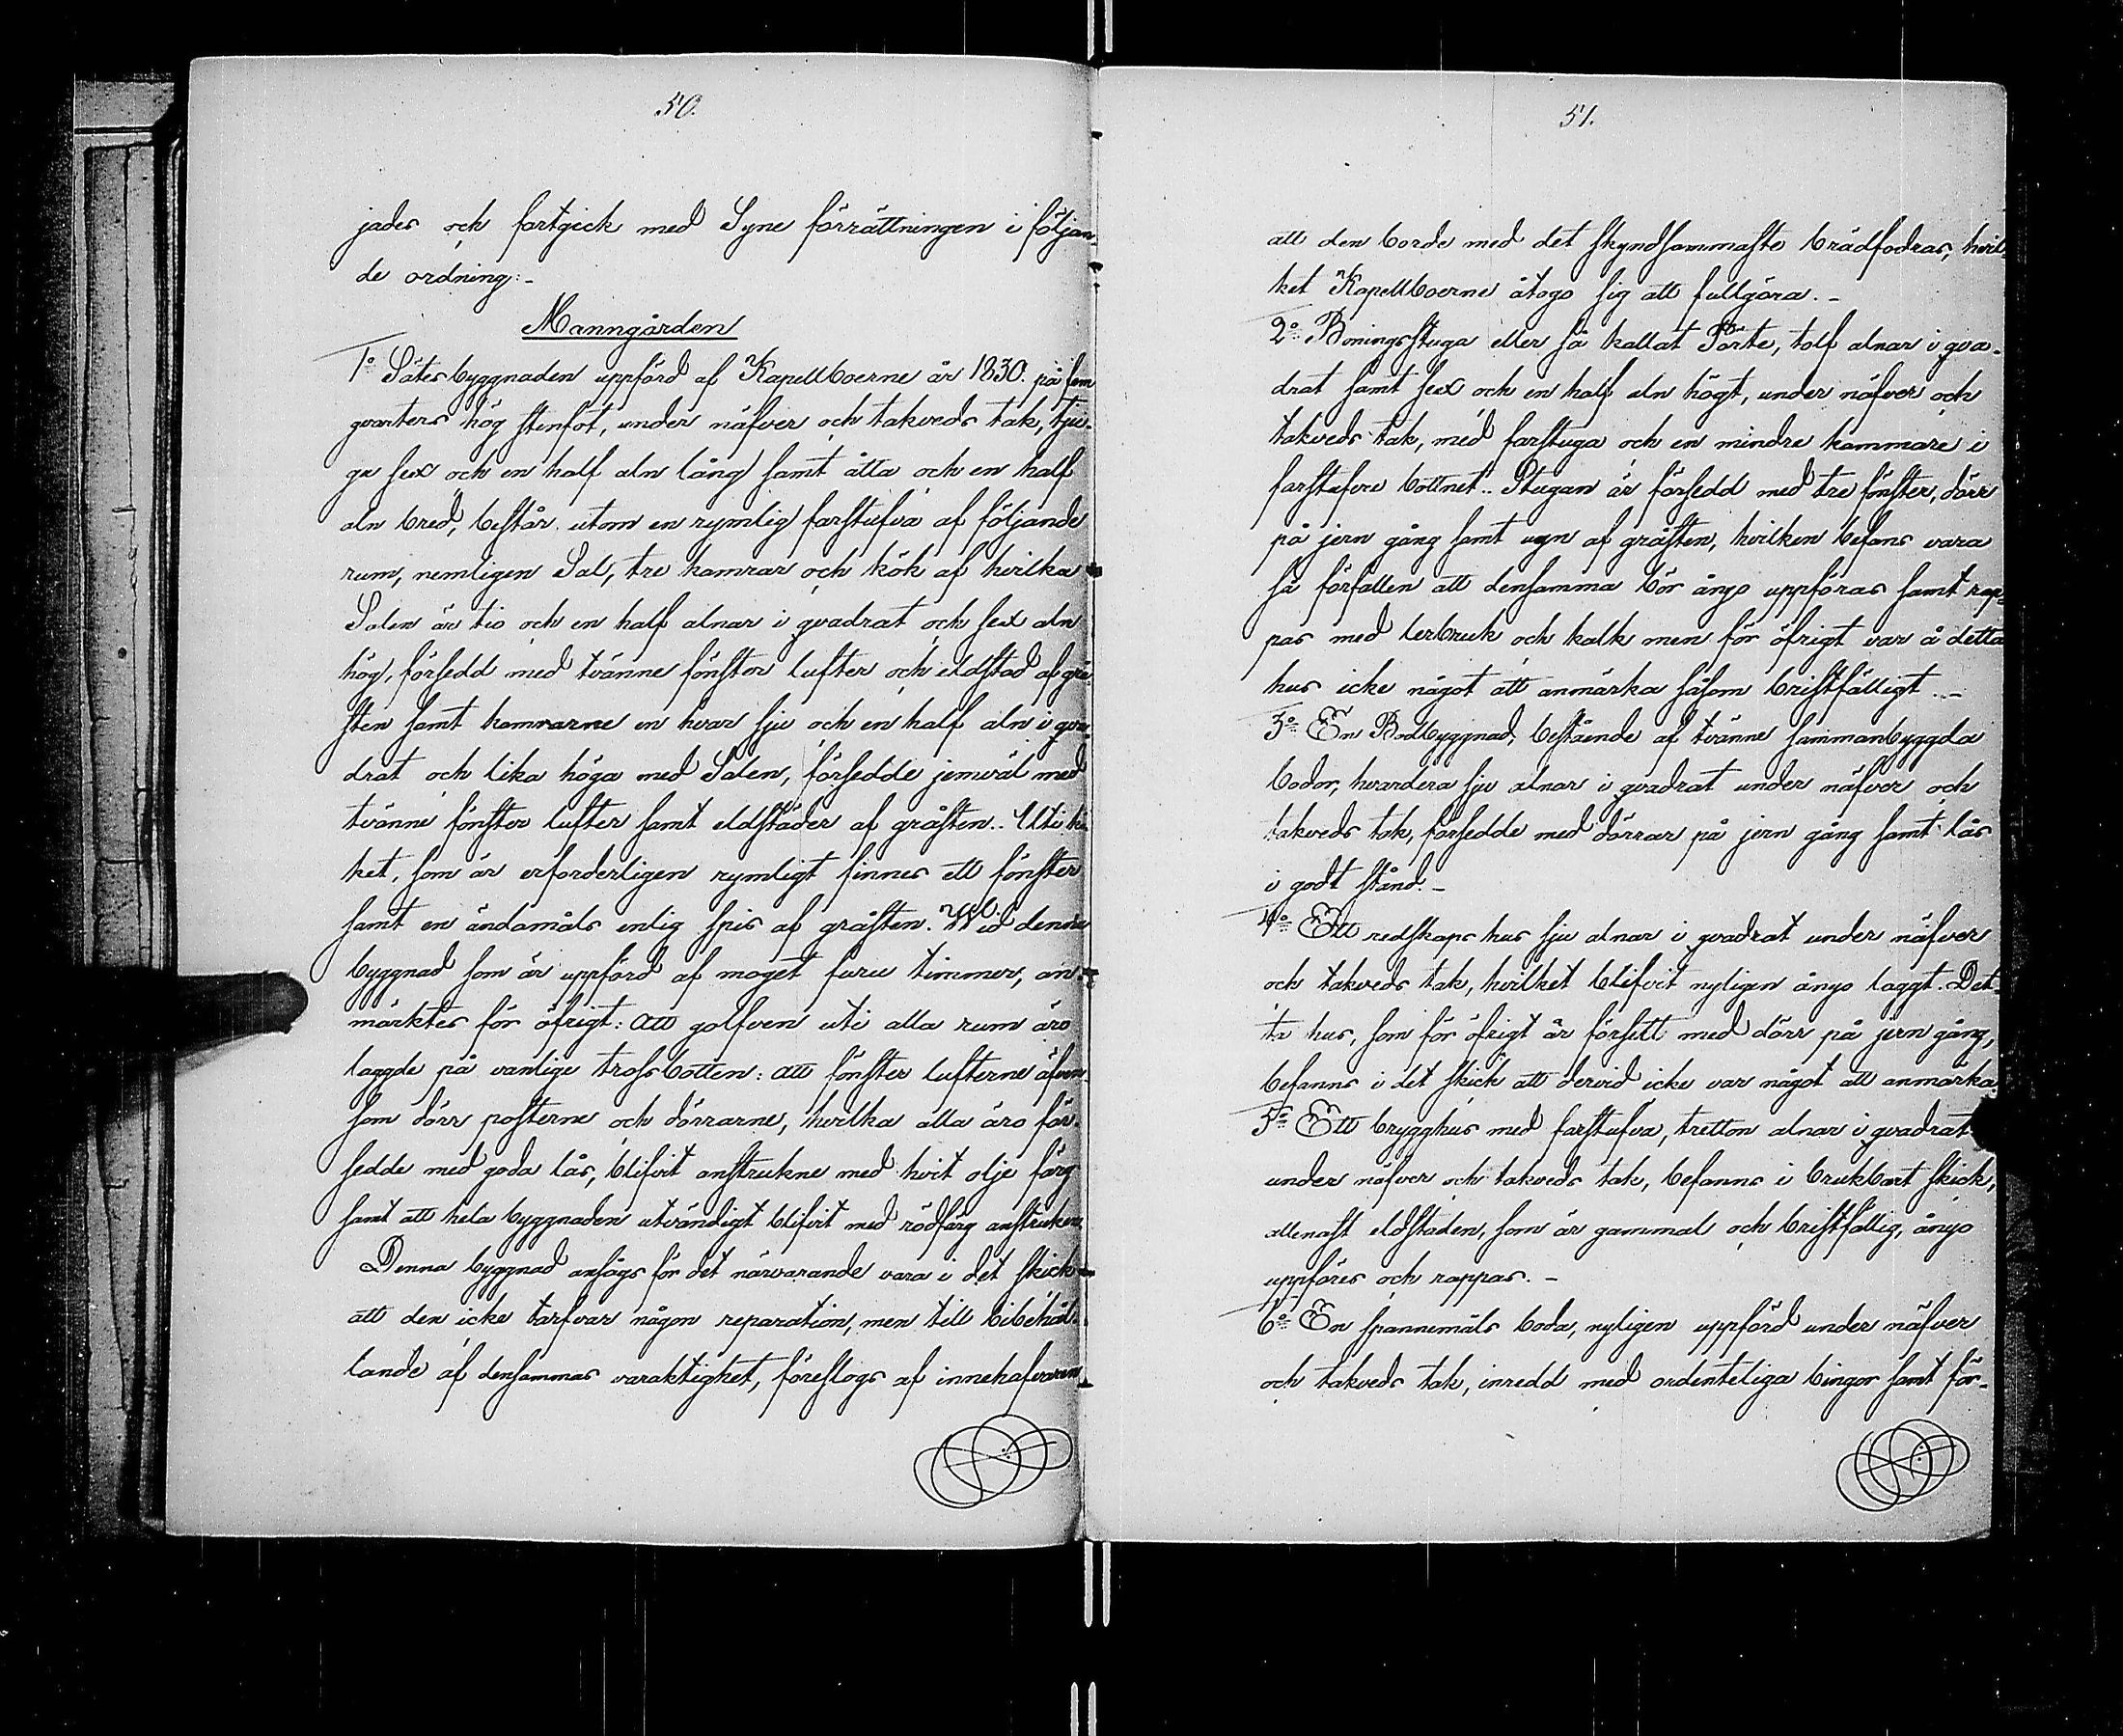 50.
jades och fortgick med Syne förrättningen i följan-
de ordning:-
Manngården
1o Sätesbyggnaden uppförd af Kapellboerne år 1830. på fem
qvarters hög stenfot, under näfver och takveds tak, tju-
gu sex och en half aln lång samt åtta och en half
aln bred, består utom en rymlig farstufva af följande
rum, nemligen Sal, tre kamrar och kök af hvilka
Salen är tio och en half alnar i qvadrat och sex aln
hög, försedd med tvänne fönster lufter och eldstad af grå-
sten samt kamrarne en hvar sju och en half aln i qva-
drat och lika höga med Salen, försedde jemväl med
tvänne fönster lufter samt eldstäder af gråsten.. Uti kö-
ket, som är erforderligen rymligt finnes ett fönster
samt en ändamåls enlig spis af gråsten. Wid denna
byggnad som är uppförd af moget furu timmer, an-
märktes för öfrigt: att golfven uti alla rum äro
laggde på vanlige trossbotten: att fönster lufterne äfven
som dörr posterne och dörrarne, hvilka alla äro för-
sedde med goda lås, blifvit anstrukne med hvit olje färg
samt att hela byggnaden utvändigt blifvit med rödfärg anstruken.
Denna byggnad ansågs för det närvarande vara i det skick
att den icke tarfvar någon reparation, men till bibehål-
lande af densammas varaktighet, föreslogs af innehafvaren
51.
att den borde med det skyndsammaste brädfodras, hvil-
ket Kapellboerne åtogo sig att fullgöra.-
2o Boningsstuga eller så kallat Pörte, tolf alnar i qva-
drat samt sex och en half aln högt, under näfver och
takveds tak, med farstuga och en mindre kammare i
farstufvu bottnet.. Stugan är försedd med tre fönster, dörr
på jern gång samt ugn af gråsten, hvilken befans vara
så förfallen att densamma bör ånyo uppföras samt rap-
pas med lerbruk och kalk men för öfrigt var å detta
hus icke något att anmärka såsom bristfälligt..-
3o En Bodbyggnad, bestående af tvänne sammanbyggda
bodor, hvardera sju alnar i qvadrat under näfver och
takveds tak, försedde med dörrar på jern gång samt lås
i godt stånd.-
4o Ett redskaps hus sju alnar i qvadrat under näfver
och takveds tak, hvilket blifvit nyligen ånyo laggt. Det-
ta hus, som för öfrigt är försett med dörr på jern gång,
befanns i det skick att dervid icke var något att anmärka.
5o Ett brygghus med farstufva, tretton alnar i qvadrat
under näfver och takveds tak, befanns i brukbart skick,
allenast eldstaden, som är gammal och bristfällig, ånyo
uppföres och rappas.-
6o En spannemåls boda, nyligen uppförd under näfver
och takveds tak, inredd med ordenteliga bingor samt för-